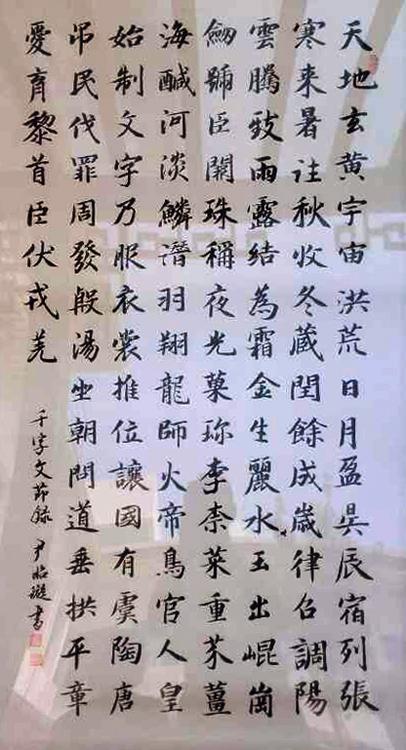 天地玄黄宇宙洪荒日月盈昃辰宿列張
寒来暑往秋收冬蔵閏餘成歲律召調陽
雲騰致雨露結為霜金生麗水玉出崐崗
劒號臣闕珠稱夜光菓珍李柰菜重芥薑
海醎河淡鱗潛羽翔龍師火帝鳥官人皇
始制文字乃服衣裳推位讓國有虞陶唐
吊民伐罪周發殷湯坐朝問道垂拱平章
愛育黎首臣伏戎羌
千字文節錄 尹璇書